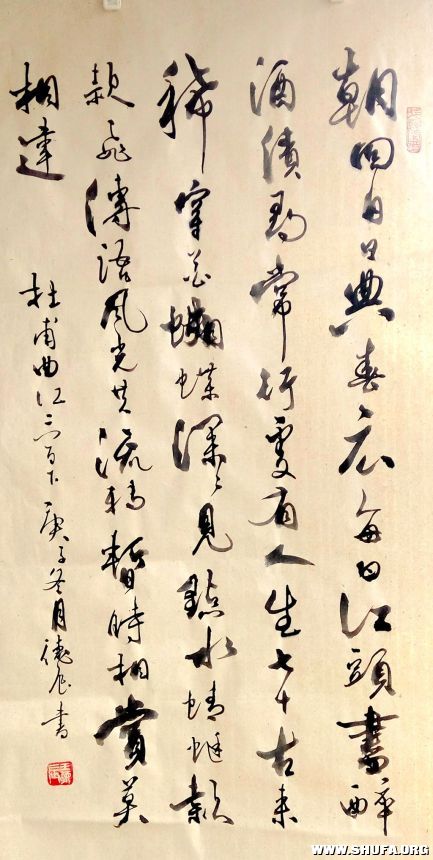 朝回日日典春衣每日江頭盡醉
酒債尋常行處有人生七十古来
稀穿花蝴蝶深々見點水蜻蜓款
款飛傳語風光共流轉暫時相賞莫
相違
杜甫曲江二首下庚子冬月德書
WWW.SHUFA.ORG